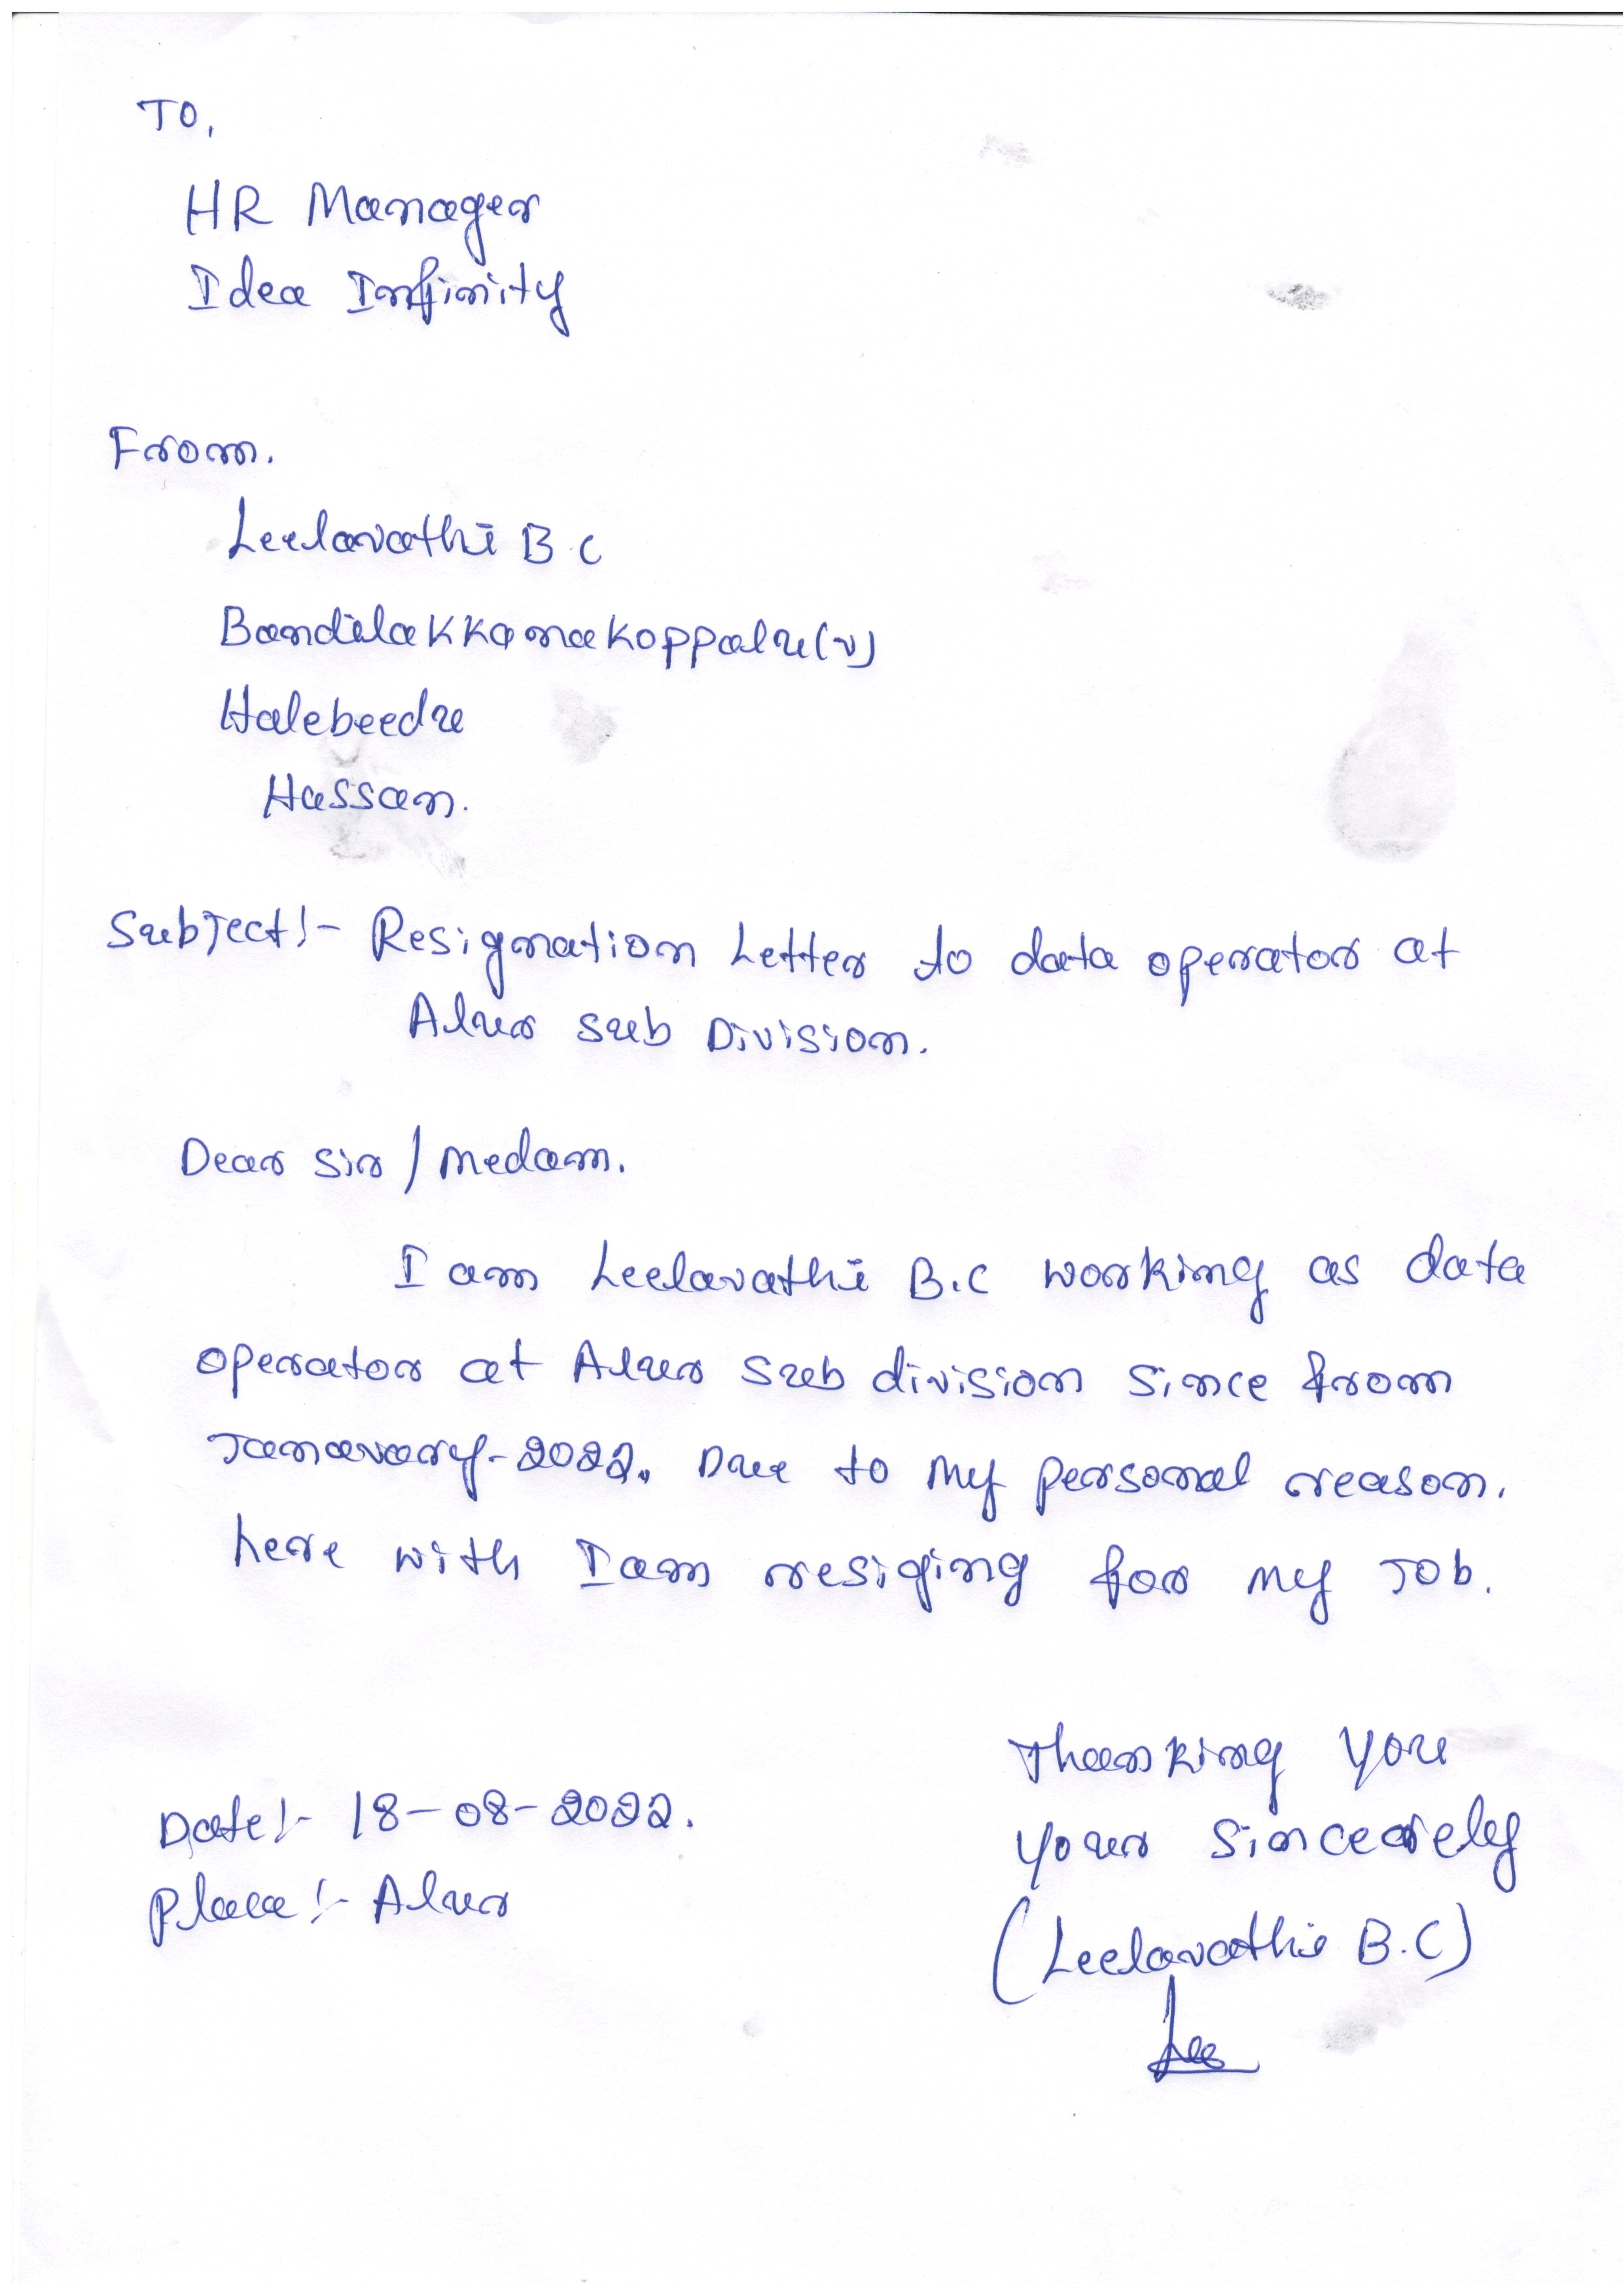 TO,
HR Manager
Idea Infinity
From.
Leelavathi B.C
Bandilakkanakoppalu(v)
Halebeedu
Hassan.
Subject:- Resignation Letter to data operator at
Alur sub Division.
Dear sir / medam.
I am Leelavathi B.C working as data
operator at Alur sub division since from
Janavary-2022. Due to my personal reason.
here with I am resiging for my Job.
Thanking you
your sincerely
Date:- 18-08-2022.
Place:- Alur
(Leelavathi B.C)
Lee